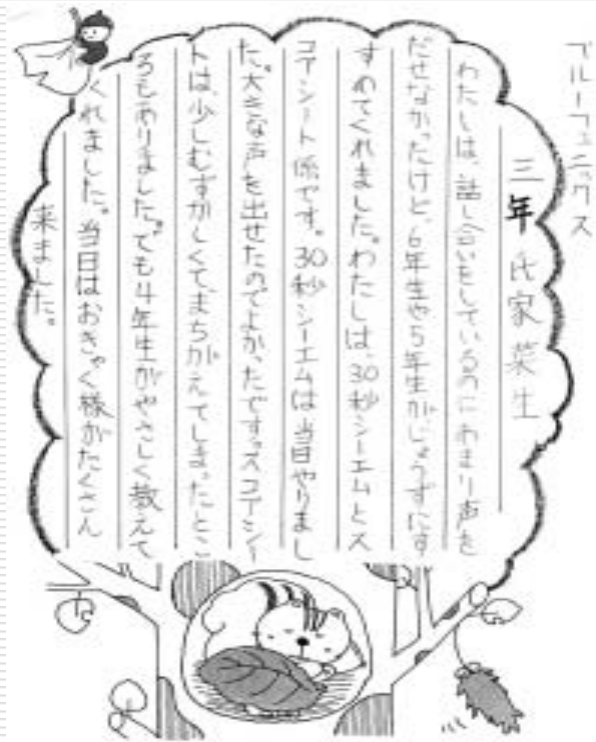 ブルーフェニックス
三年 氏家菜生
わたしは、話し合いをしているのにあまり声を
だせなかったけど、6年生や5年生がじょうずにす
すめてくれました。わたしは、30秒シーエムとス
コアシート係です。30秒シーエムは当日やりまし
た。大きな声を出せたのでよかったです。スコアシー
トは、少しむずかしくて、まちがえてしまったとこ
ろもありました。でも4年生がやさしく教えて
くれました。当日はおきゃく様がたくさん
来ました。